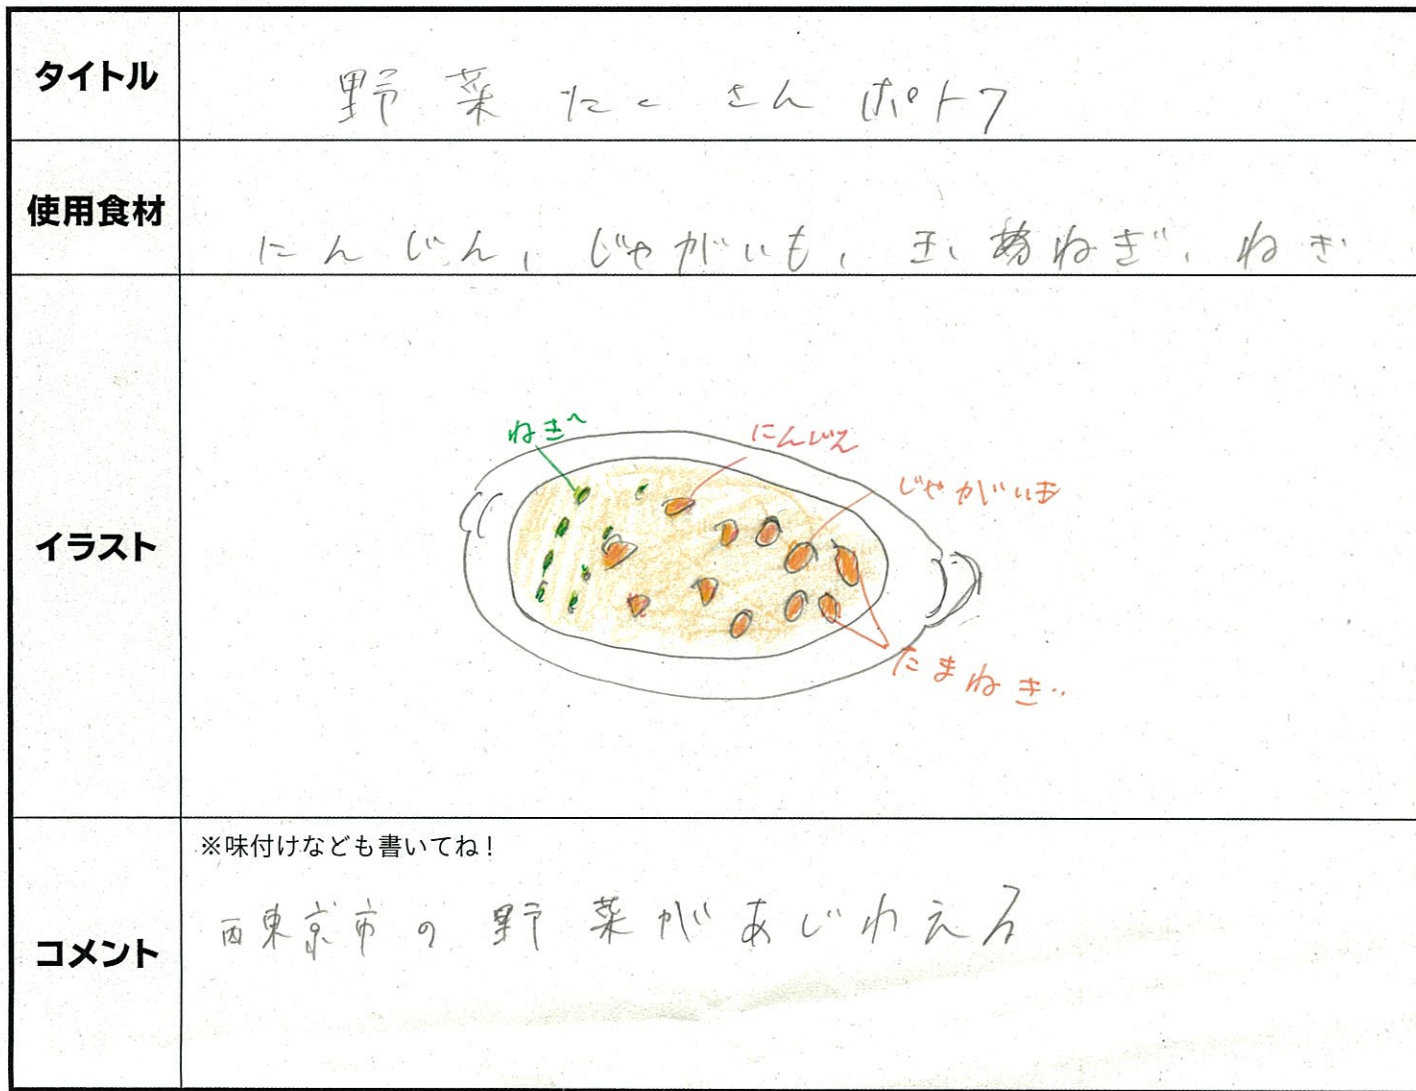 タイトル
野菜たくさんポトフ
使用食材
にんじん、じゃがいも、玉ねぎ、ねぎ
イラスト
ねぎ
にんじん
じゃがいも
たまねぎ
コメント
※味付けなども書いてね!
西東京市の野菜があじわえる